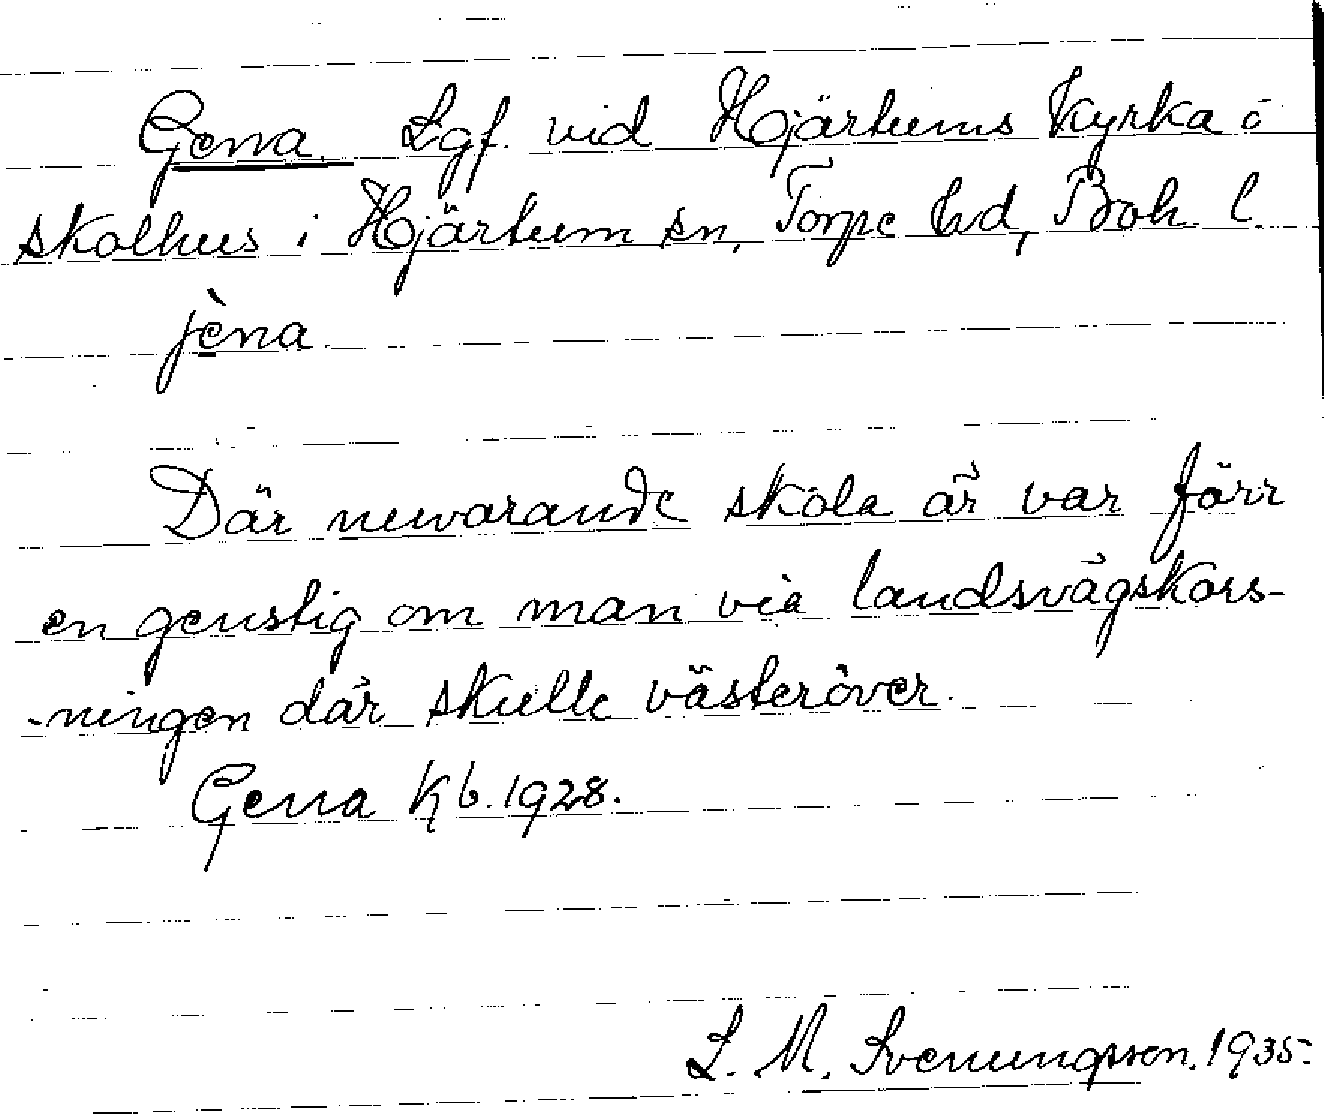 Gena. Lgf. vid Hjärtums Kyrka o
skolhus i Hjärtum sn, Torpe hd, Boh l.
jèna.
Där nuvarande skola är var förr
en genstig om man via landsvägskors-
-ningen där skulle västeröver.
Gena Kb. 1928.
L. M. Svenungsson. 1935.